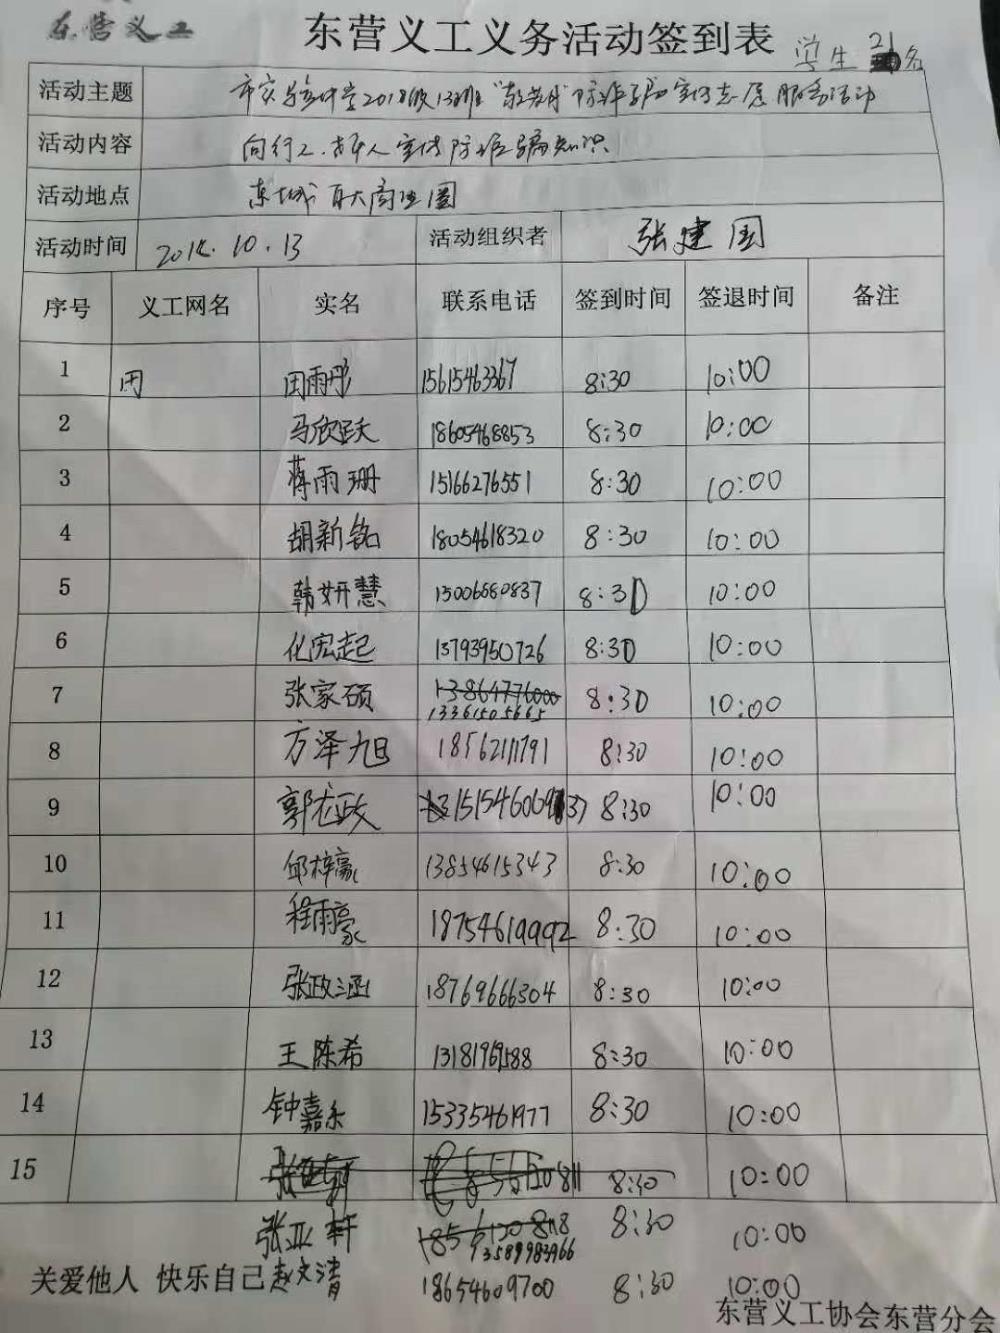 东营义工
东营义工义务活动签到表
学生 21名
活动主题 市实验中学2018级13班"敬老月"防诈骗宣传志愿服务活动
活动内容 向行人、老年人宣传防诈骗知识
活动地点 东城百大商业圈
活动时间 10.13 活动组织者 张建国
序号 义工网名 实名 联系电话 签到时间 签退时间 备注
1 田 田雨彤 15615463367 8:30 10:00
2 马欣跃 18605468853 8:30 10:00
3 蒋雨珊 15166276551 8:30 10:00
4 胡新铭 18054618320 8:30 10:00
5 韩妍慧 15006680837 8:30 10:00
6 化宏起 13793950726 8:30 10:00
7 张家硕 13864776000 8:30 10:00
13361505665
8 方泽旭 18562111791 8:30 10:00
9 郭龙政 8:30 10:00
10 邱梓豪 13854615343 8:30 10:00
11 程雨豪 18754619992 8:30 10:00
12 张政涵 18769666304 8:30 10:00
13 王陈希 8:30 10:00
14 钟嘉乐 15335461977 8:30 10:00
15 8:30 10:00
张亚轩 8:30 10:00
13589983966
关爱他人 快乐自己 赵文清 18654609700 8:30 10:00
东营义工协会东营分会